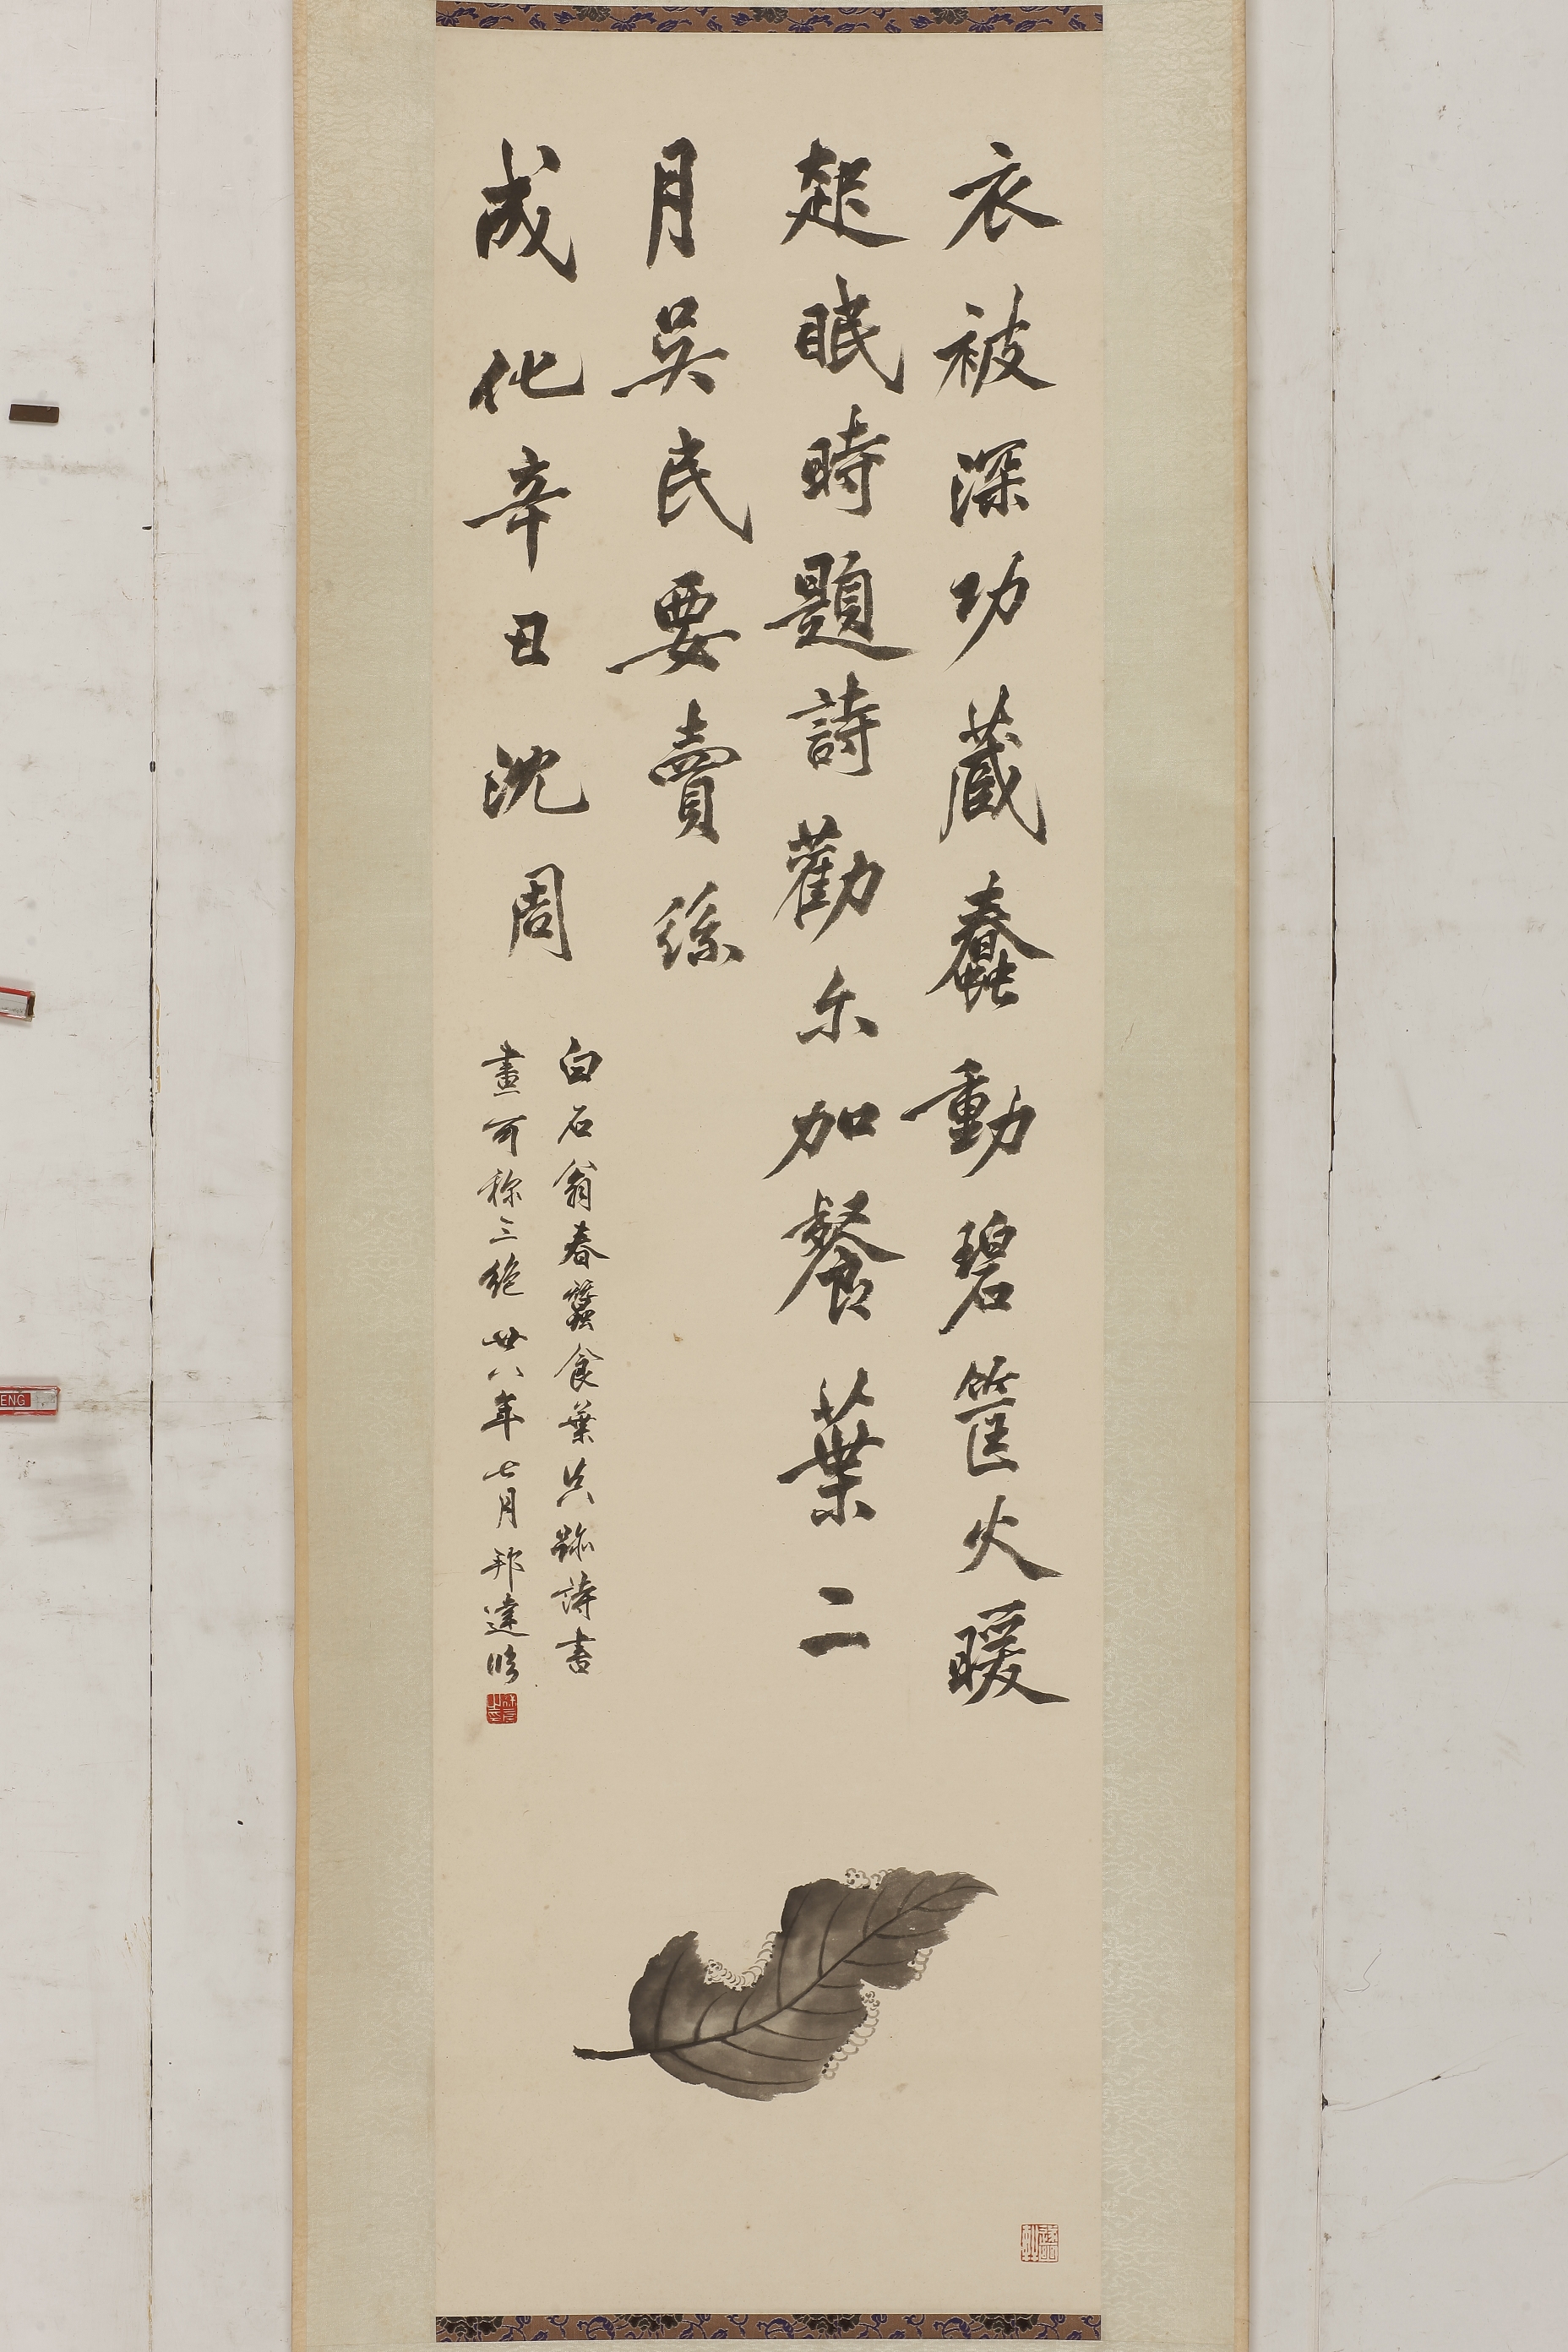 衣被深功藏蠢動碧筐火暖
起眠時題詩勸尔加餐葉二
月吳民要賣絲
成化辛丑沈周
白石翁春蠶食葉真跡詩書
畫可称三絶廿八年七月邦達臨